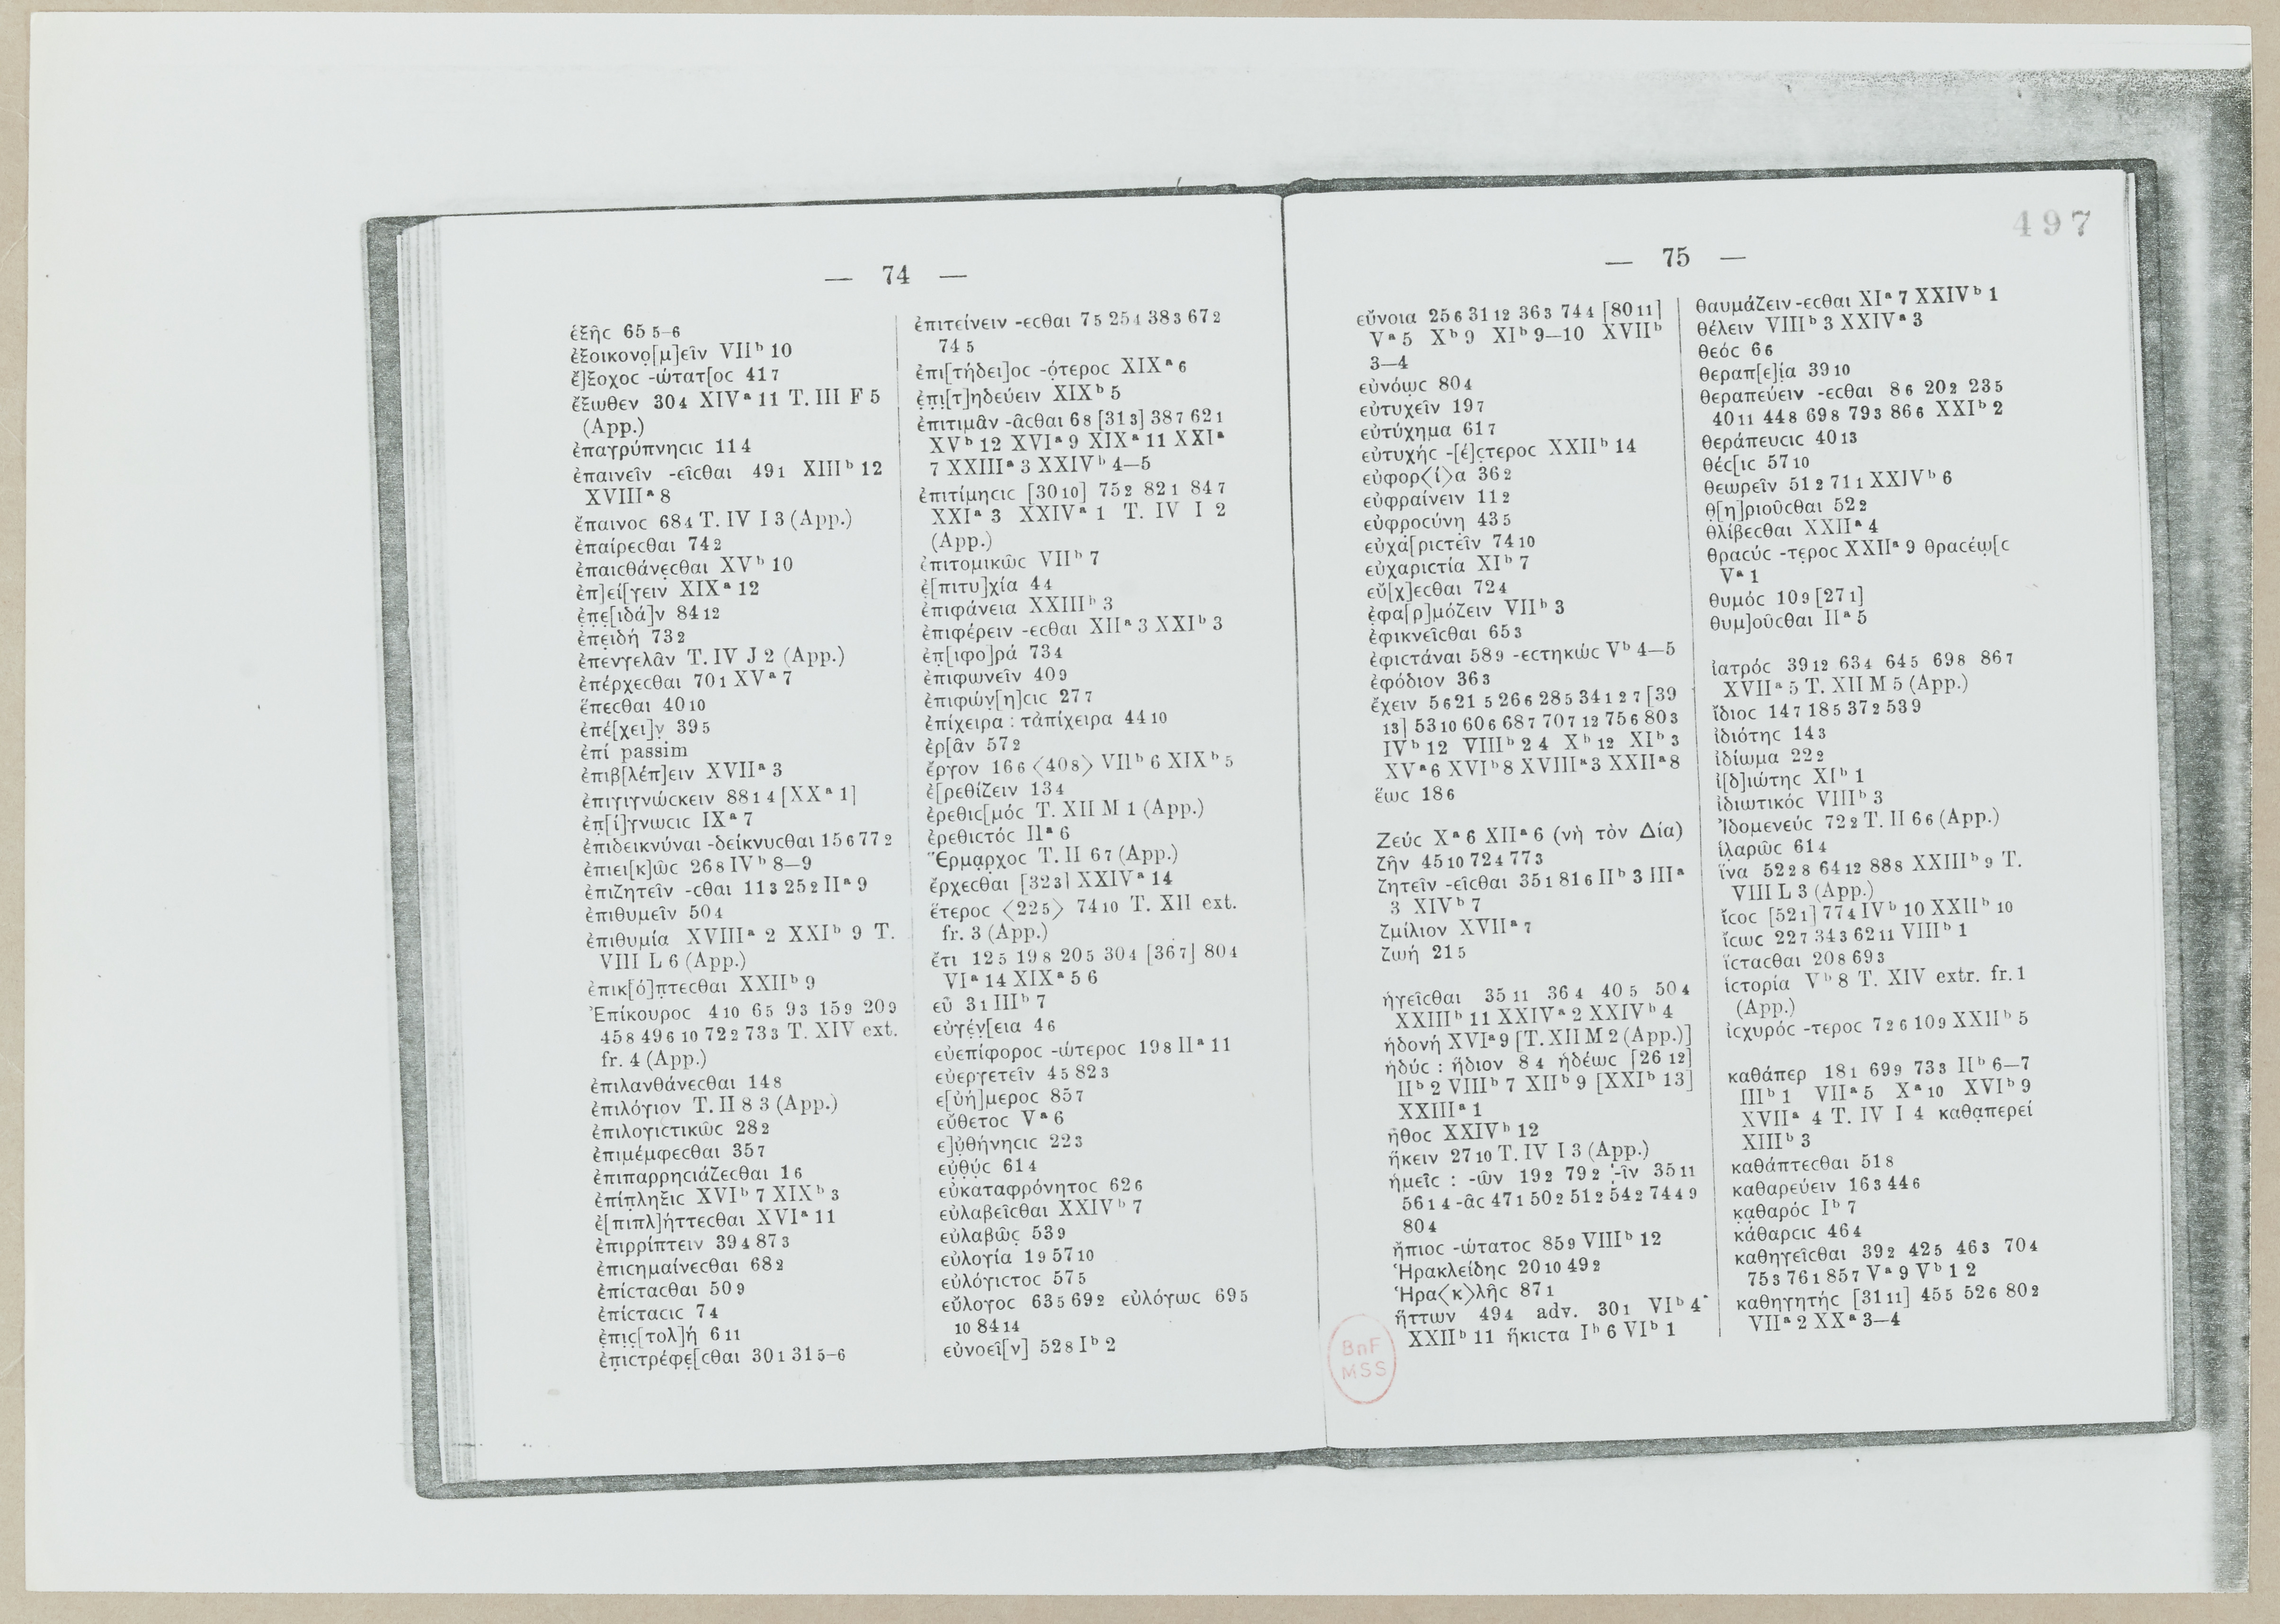 497
— 74 —
ἑξῆϲ 65 5–6
ἐξοικονο̣[μ]εῖν VIIᵇ 10
ἔ]ξοχοϲ -ώτατ[οϲ 41 7
ἔξωθεν 30 4 XIVᵃ 11 T. III F 5
(App.)
ἐπαγρύπνηϲιϲ 11 4
ἐπαινεῖν -εῖϲθαι 49 1 XIIIᵇ 12
XVIIIᵃ 8
ἔπαινοϲ 68 4 T. IV I 3 (App.)
ἐπαίρεϲθαι 74 2
ἐπαιϲθάνε̣ϲθαι XVᵇ 10
ἐπ]εί[γειν XIXᵃ 12
ἐπ̣ε̣[ιδά]ν 84 12
ἐπε̣ιδή 73 2
ἐπενγελᾶν T. IV J 2 (App.)
ἐπέρχεϲθαι 70 1 XVᵃ 7
ἕπεϲθαι 40 10
ἐπέ[χει]ν̣ 39 5
ἐπί passim
ἐπιβ[λέπ]ειν XVIIᵃ 3
ἐπιγιγνώϲκειν 88 1 4 [XXᵃ 1]
ἐπ̣[ί]γνωϲιϲ IXᵃ 7
ἐπιδεικνύναι -δείκνυϲθαι 15 6 77 2
ἐπιει[κ]ῶϲ 26 8 IVᵇ 8–9
ἐπιζητεῖν -ϲθαι 11 3 25 2 IIᵃ 9
ἐπιθυμεῖν 50 4
ἐπιθυμία XVIIIᵃ 2 XXIᵇ 9 T.
VIII L 6 (App.)
ἐπικ[ό]π̣τεϲθαι XXIIᵇ 9
Ἐπίκουροϲ 4 10 6 5 9 3 15 9 20 9
45 8 49 6 10 72 2 73 3 T. XIV ext.
fr. 4 (App.)
ἐπιλανθάνεϲθαι 14 8
ἐπιλόγιον T. II 8 3 (App.)
ἐπιλογιϲτικῶϲ 28 2
ἐπιμέμφεϲθαι 35 7
ἐπιπαρρηϲιάζεϲθαι 1 6
ἐπίπ̣ληξιϲ XVIᵇ 7 XIXᵇ 3
ἐ[πιπλ]ήττεϲθαι XVIᵃ 11
ἐπιρρίπτειν 39 4 87 3
ἐπιϲημαίνεϲθαι 68 2
ἐπίϲταϲθαι 50 9
ἐπίϲταϲιϲ 7 4
ἐπ̣ιϲ̣[τολ]ή 6 11
ἐπ̣ιϲτρέφε̣[ϲθαι 30 1 31 5–6
ἐπιτείνειν -εϲθαι 7 5 25 4 38 3 67 2
74 5
ἐπι[τήδει]οϲ -ό̣τεροϲ XIXᵃ 6
ἐ̣π̣ι[τ]ηδεύειν XIXᵇ 5
ἐπιτιμᾶν -ᾶϲθαι 6 8 [31 3] 38 7 62 1
XVᵇ 12 XVIᵃ 9 XIXᵃ 11 XXIᵃ
7 XXIIIᵃ 3 XXIVᵇ 4–5
ἐπιτίμηϲιϲ [30 10] 75 2 82 1 84 7
XXIᵃ 3 XXIVᵃ 1 T. IV I 2
(App.)
ἐπιτομικῶϲ VIIᵇ 7
ἐ̣[πιτυ]χία 4 4
ἐπιφάνεια XXIIIᵇ 3
ἐπιφέρειν -εϲθαι XIIᵃ 3 XXIᵇ 3
ἐπ̣[ιφο]ρά 73 4
ἐπιφωνεῖν 40 9
ἐπιφών̣[η]ϲιϲ 27 7
ἐπίχειρα : τἀπίχειρα 44 10
ἐρ[ᾶν 57 2
ἔργον 16 6 ⟨40 8⟩ VIIᵇ 6 XIXᵇ 5
ἐ[ρεθίζειν 13 4
ἐρεθιϲ[μόϲ T. XII M 1 (App.)
ἐρεθιϲτόϲ IIᵃ 6
Ἕρμα̣ρχοϲ T. II 6 7 (App.)
ἔρχεϲθαι [32 3] XXIVᵃ 14
ἕτεροϲ ⟨22 5⟩ 74 10 T. XII ext.
fr. 3 (App.)
ἔτι 12 5 19 8 20 5 30 4 [36 7] 80 4
VIᵃ 14 XIXᵃ 5 6
εὖ 3 1 IIIᵇ 7
εὐγέν̣[εια 4 6
εὐεπίφοροϲ -ώτεροϲ 19 8 IIᵃ 11
εὐεργετεῖν 4 5 82 3
ε[ὐή]μεροϲ 85 7
εὔθετοϲ Vᵃ 6
ε]ὐ̣θήνηϲιϲ 22 3
εὐ̣θ̣ύ̣ϲ 61 4
εὐκαταφρόνητοϲ 62 6
εὐλαβεῖϲθαι XXIVᵇ 7
εὐλαβῶϲ̣ 53 9
εὐλογία 19 5 7 10
εὐλόγιϲτοϲ 57 5
εὔλογοϲ 63 5 69 2 εὐλόγωϲ 69 5
10 84 14
εὐνοεῖ[ν] 52 8 Iᵇ 2
— 75 —
εὔνοια 25 6 31 12 36 3 74 4 [80 11]
Vᵃ 5 Xᵇ 9 XIᵇ 9–10 XVIIᵇ
3–4
εὐνόω̣ϲ 80 4
εὐτυχεῖν 19 7
εὐτύχημα 61 7
εὐτυχήϲ -[έ]ϲ̣τεροϲ XXIIᵇ 14
εὐφορ⟨ί⟩α 36 2
εὐφραίνειν 11 2
εὐφροϲύνη 43 5
εὐχα[ριϲτεῖν 74 10
εὐχαριϲτία XIᵇ 7
εὔ[χ]εϲθαι 72 4
ἐ̣φα[ρ]μόζειν VIIᵇ 3
ἐφικνεῖϲθαι 65 3
ἐφιϲτάναι 58 9 -εϲτηκώϲ Vᵇ 4–5
ἐφόδιον 36 3
ἔχειν 5 6 21 5 26 6 28 5 34 1 2 7 [39
13] 53 10 60 6 68 7 70 7 12 75 6 80 3
IVᵇ 12 VIIIᵇ 2 4 Xᵇ 12 XIᵇ 3
XVᵃ 6 XVIᵇ 8 XVIIIᵃ 3 XXIIᵃ 8
ἕωϲ 18 6
Ζεύϲ Xᵃ 6 XIIᵃ 6 (νὴ τὸν Δία)
ζῆν 45 10 72 4 77 3
ζητεῖν -εῖϲθαι 35 1 81 6 IIᵇ 3 IIIᵃ
3 XIVᵇ 7
ζμίλιον XVIIᵃ 7
ζωή 21 5
ἡγεῖϲθαι 35 11 36 4 40 5 50 4
XXIIIᵇ 11 XXIVᵃ 2 XXIVᵇ 4
ἡδονή XVIᵃ 9 [T. XII M 2 (App.)]
ἡδύϲ : ἥδιον 8 4 ἡδέωϲ [26 12]
IIᵇ 2 VIIIᵇ 7 XIIᵇ 9 [XXIᵇ 13]
XXIIIᵃ 1
ἦθοϲ XXIVᵇ 12
ἥκειν 27 10 T. IV I 3 (App.)
ἡμεῖϲ : -ῶν 19 2 79 2 -ῖν 35 11
56 1 4 -ᾶϲ 47 1 50 2 51 2 54 2 74 4 9
80 4
ἤπιοϲ -ώτατοϲ 85 9 VIIIᵇ 12
Ἡρακλείδηϲ 20 10 49 2
Ἡρα⟨κ⟩λῆϲ 87 1
ἥττων 49 4 adv. 30 1 VIᵇ 4
XXIIᵇ 11 ἥκιϲτα Iᵇ 6 VIᵇ 1
θαυμάζειν -εϲθαι XIᵃ 7 XXIVᵇ 1
θέλειν VIIIᵇ 3 XXIVᵃ 3
θεόϲ 6 6
θεραπ[ε]ία 39 10
θεραπεύειν -εϲθαι 8 6 20 2 23 5
40 11 44 8 69 8 79 3 86 6 XXIᵇ 2
θεράπευϲιϲ 40 13
θέϲ[ιϲ 57 10
θεωρεῖν 51 2 71 1 XXIVᵇ 6
θ̣[η]ριοῦϲθαι 52 2
θλίβεϲθαι XXIIᵃ 4
θραϲύϲ -τεροϲ XXIIᵃ 9 θραϲέω̣[ϲ
Vᵃ 1
θυμόϲ 10 9 [27 1]
θυμ]οῦϲθαι IIᵃ 5
ἰατρόϲ 39 12 63 4 64 5 69 8 86 7
XVIIᵃ 5 T. XII M 5 (App.)
ἴδιοϲ 14 7 18 5 37 2 53 9
ἰδιότηϲ 14 3
ἰδίωμα 22 2
ἰ[δ]ιώτηϲ XIᵇ 1
ἰδιωτικόϲ VIIIᵇ 3
Ἰδομενεύϲ 72 2 T. II 6 6 (App.)
ἱλαρῶϲ 61 4
ἵνα 52 2 8 64 12 88 8 XXIIIᵇ 9 T.
VIII L 3 (App.)
ἴϲοϲ [52 1] 77 4 IVᵇ 10 XXIIᵇ 10
ἴϲωϲ 22 7 34 3 62 11 VIIIᵇ 1
ἵϲταϲθαι 20 8 69 3
ἱϲτορία Vᵇ 8 T. XIV extr. fr. 1
(App.)
ἰϲχυρόϲ -τεροϲ 7 2 6 10 9 XXIIᵇ 5
καθάπερ 18 1 69 9 73 3 IIᵇ 6–7
IIIᵇ 1 VIIᵃ 5 Xᵃ 10 XVIᵇ 9
XVIIᵃ 4 T. IV I 4 καθα̣περεί
XIIIᵇ 3
καθάπτεϲθαι 51 8
καθαρεύειν 16 3 44 6
κ̣α̣θαρόϲ Iᵇ 7
κάθαρϲιϲ 46 4
καθηγεῖϲθαι 39 2 42 5 46 3 70 4
75 3 76 1 85 7 Vᵃ 9 Vᵇ 1 2
καθηγητήϲ [31 11] 45 5 52 6 80 2
VIIᵃ 2 XXᵃ 3–4
BnF
MSS